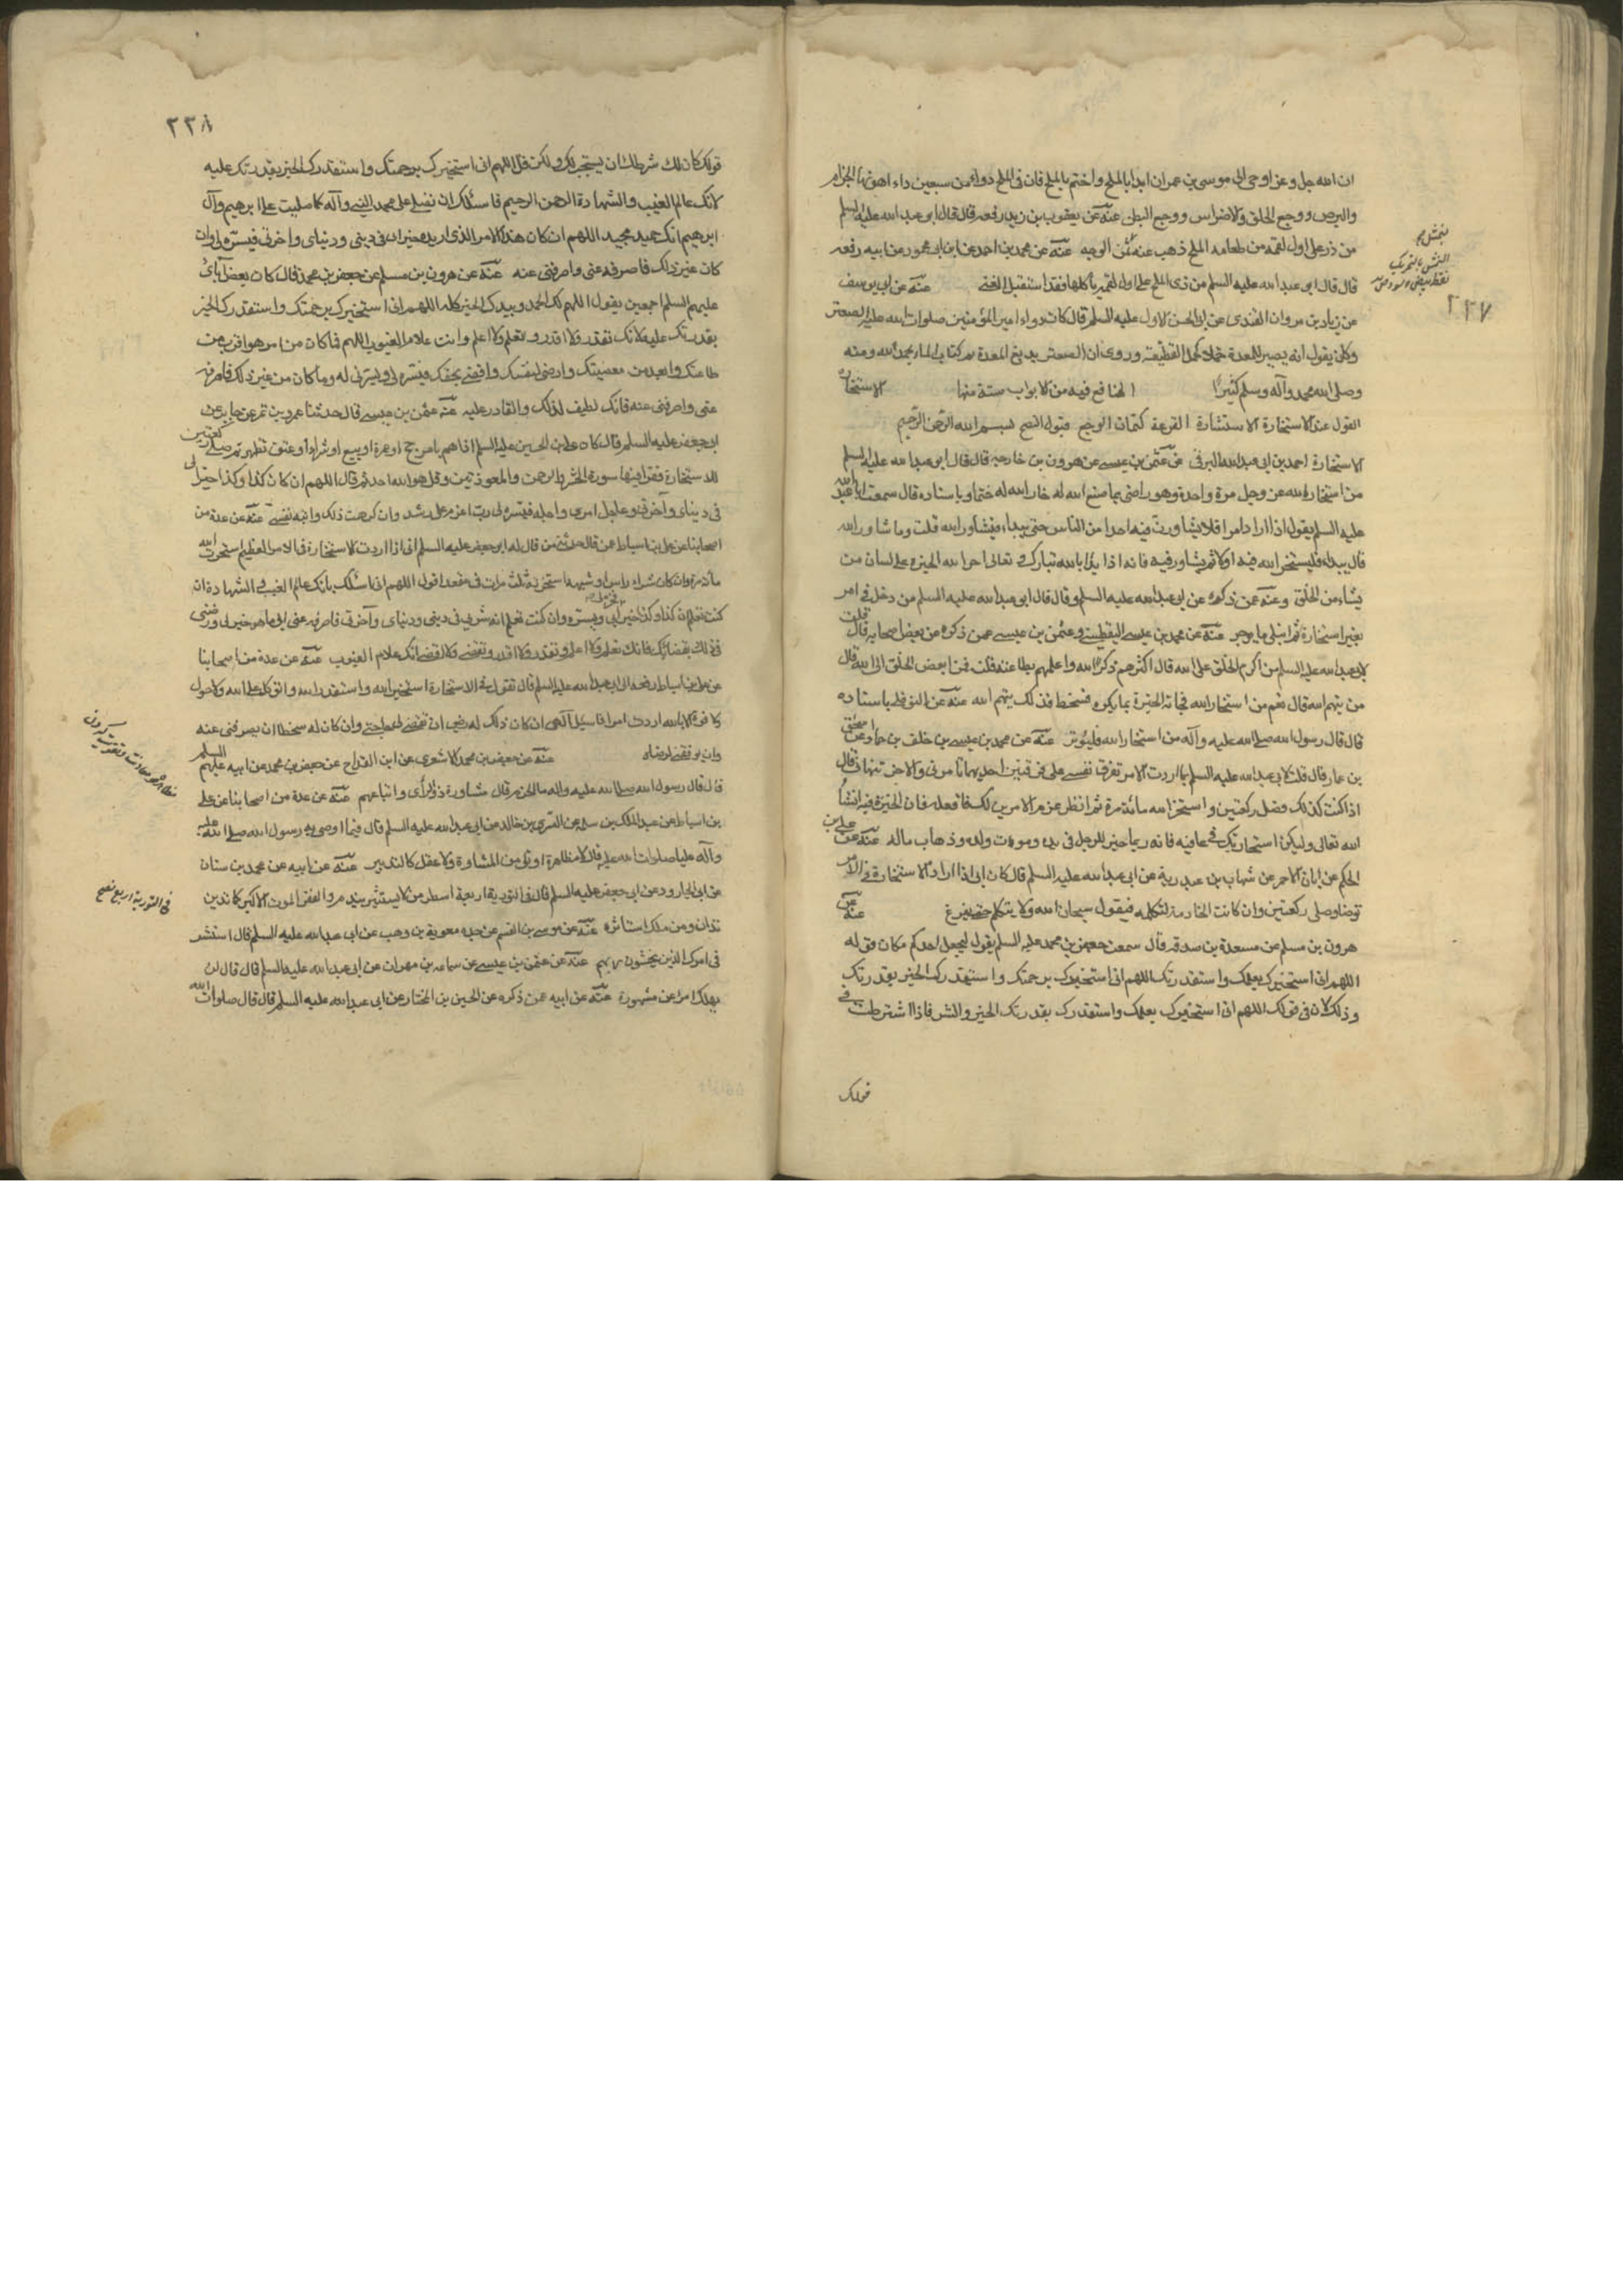 ان الله جل وعز اوحى الى موسى بن عمران ابدا بالملح واختم بالملح فان فى الملح دواء من سبعين داء اهونها الجذام
والبرص ووجع الحلق والاضراس ووجع البطن عنه عن يعقوب بن زيد رفعه قال قال ابو عبد الله عليه السلم
من ذر على اول لقمة من طعامه الملح ذهب عنه نمش الوجه عنه عن محمد بن احمد عن ابن ابى محمود عن ابيه رفعه
قال قال ابو عبد الله عليه السلم من ذر الملح على اول لقمة ياكلها فقد استقبل الغنى عنه عن ابى يوسف
عن زياد بن مروان القندى عن ابى الحسن الاول عليه السلم قال كان دواء امير المؤمنين صلوات الله عليه الصعتر
وكان يقول انه يصير للمعدة خملا كخمل القطيفة وروى ان الصعتر يدبغ المعدة تم كتاب الماء بحمد الله ومنه
وصلى الله محمد وآله وسلم كثيرا المنافع فيه من الابواب ستة منها الاستخارة
القول عند الاستخارة الاستشارة القرعة كتمان الوجع قبول النصح بسم الله الرحمن الرحيم
الاستخارة احمد بن ابى عبد الله البرقى عن عثمن بن عيسى عن هرون بن خارجة قال قال ابو عبد الله عليه السلم
من استخار الله عز وجل مرة واحدة وهو راضى بما صنع الله له خار الله له حتما وباسناده قال سمعت ابا عبد الله
عليه السلم يقول اذا اراد امرا فلا يشاورن فيه احدا من الناس حتى يبدا فيشاور الله قلت وما مشاور الله
قال يبدا فليستخير الله فيه اولا ثم يشاور فيه فانه اذا بدا بالله تبارك وتعالى اجرا الله الخيرة على لسان من
يشاء من الخلق وعنه عمن ذكره عن ابى عبد الله عليه السلم وقال قال ابو عبد الله عليه السلم من دخل فى امر
بغير استخارة ثم ابتلى لم يوجر عنه عن محمد بن عيسى اليقطينى وعثمن بن عيسى عمن ذكره عن بعض اصحابه قال قلت
لابى عبد الله عليه السلم من اكرم الخلق على الله قال اكثرهم ذكرا لله واعلمهم بطاعته قلت فمن ابغض الخلق الى الله قال
من يتهم الله قال نعم من استخار الله فجاءته الخيرة بما يكره فسخط فذلك يتهم الله عنه عن النوفلى باسناده
قال قال رسول الله صلى الله عليه وآله من استخار الله فليوتر عنه عن محمد بن عيسى بن خلف بن حماد عن اسحق
بن عمار قال قلت لابى عبد الله عليه السلم بما اردت الامر تفرق نفسى على فرقتين احديهما تامرنى والاخرى تنهانى قال
اذا كنت كذلك فصل ركعتين واستخر الله مائة مرة ثم انظر عزم الامرين لك فافعله فان الخيرة فيه انشاء
الله تعالى وليكن استخارتك فى عافيه فانه ربما خير للرجل فى يده وموت ولده وذهاب ماله عنه عن على بن
الحكم عن ابان الاحمر عن شهاب بن عبد ربه عن ابى عبد الله عليه السلم قال كان ابى اذا اراد الاستخارة فى الامر
توضا وصلى ركعتين وان كانت الخادمة لتكلمه فيقول سبحان الله ولا يتكلم حتى يفرغ عنه عن
هرون بن مسلم عن مسعدة بن صدقه قال سمعت جعفر بن محمد عليه السلم يقول ليجعل احدكم مكان قوله
اللهم انى استخيرك بعلمك واستقدرك بقدرتك اللهم انى استخيرك برحمتك واستقدرك الخير بقدرتك
وذلك لان فى قولك اللهم انى استخيرك بعلمك واستقدرك بقدرتك الخير والشر فاذا اشترطت فى
قولك
النمش بالتحريك
نقط بيض وسود ص
٢٣٧
٢٣٨
قولك كان لك شرطك ان يستجب لك ولكن قل اللهم انى استخيرك برحمتك واستقدرك الخير بقدرتك عليه
لانك عالم الغيب والشهادة الرحمن الرحيم فاسئلك ان تصلى على محمد النبى وآله كما صليت على ابرهيم وآل
ابرهيم انك حميد مجيد اللهم ان كان هذا الامر الذى اريده خير لى فى دينى ودنياى واخرتى فيسره لى وان
كان غير ذلك فاصرفه عنى واصرفنى عنه عنه عن هرون بن مسلم عن جعفر بن محمد قال كان بعض آبائى
عليهم السلم اجمعين يقول اللهم لك الحمد وبيدك الخير كله اللهم انى استخيرك برحمتك واستقدرك الخير
بقدرتك عليه لانك تقدر ولا اقدر وتعلم ولا اعلم وانت علام الغيوب اللهم فما كان من امر هو اقرب من
طاعتك وابعد من معصيتك وارضى لنفسك واقضى بحقك فيسره لى ويسرنى له وما كان من غير ذلك فاصرفه
عنى واصرفنى عنه فانك لطيف لذلك والقادر عليه عنه عثمن بن عيسى قال حدثنا عمرو بن شمر عن جابر عن
ابى جعفر عليه السلم قال كان على بن الحسين عليه السلم اذا هم بامر حج او عمرة او بيع او شراء او عتق تطهر ثم صلى ركعتين
للاستخارة فقرا فيها سورة الحشر والرحمن والمعوذتين وقل هو الله احد ثم قال اللهم ان كان كذا وكذا خيرا لى
فى دينياى وآخرتى وعاجل امرى واجله فيسره لى رب اعزم على رشدى وان كرهت ذلك وابته نفسى عنه عن عدة من
اصحابنا عن على بن اسباط عن قال حدثنى من قال له ابو جعفر عليه السلم انى اذا اردت الاستخارة فى الامر العظيم استخرت الله
مائة مرة وان كان شراء راس او شبهه استخرته ثلث مرات فى مقعد اقول اللهم انى اسئلك بانك عالم الغيب والشهادة ان
كنت تعلم ان كذا وكذا خير لى فخره لى ويسره وان كنت تعلم انه شر لى فى دينى ودنياى وآخرتى فاصرفه عنى الى ما هو خير لى ورضنى
فى ذلك بقضائك فانك تعلم ولا اعلم وتقدر ولا اقدر وتقضى ولا اقضى انك علام الغيوب عنه عن عدة من اصحابنا
عن على بن اسباط رفعه الى ابى عبد الله عليه السلم قال تقول فى الاستخارة استخير الله واستقدر الله واتوكل على الله ولا حول
ولا قوة الا بالله اردت امرا فاسئل الهى ان كان ذلك له رضى ان تقضى لى حاجتى وان كان له سخطا ان يصرفنى عنه
وان يوفقنى لرضاه عنه عن جعفر بن محمد الاشعرى عن ابن القداح عن جعفر بن محمد عن ابيه عليهم السلم
قال قال رسول الله صلى الله عليه واله ما الحزم قال مشاورة ذوى الرأى واتباعهم عنه عن عدة من اصحابنا عن على
بن اسباط عن عبد الملك بن سلمة عن السرى بن خالد عن ابى عبد الله عليه السلم قال فيما اوصى به رسول الله صلى الله عليه
وآله عليا صلوات الله عليه قال لا مظاهرة اوثق من المشاورة ولا عقل كالتدبير عنه عن ابيه عن محمد بن سنان
عن ابى الجارود عن ابى جعفر عليه السلم قال فى التورية اربعة اسطر من لا يستشير يندم والفقر الموت الاكبر كما تدين
تدان ومن ملك استاثر عنه عن موسى بن القسم عن جده معوية بن وهب عن ابى عبد الله عليه السلم قال استشر
فى امرك الذين يخشون ربهم عنه عن عثمن بن عيسى عن سماعه بن مهران عن ابى عبد الله عليه السلم قال قال لن
يهلك امرؤ عن مشورة عنه عن ابيه عمن ذكره عن الحسين بن المختار عن ابى عبد الله عليه السلم قال قال صلوات الله
فى التورية اربع نصيح